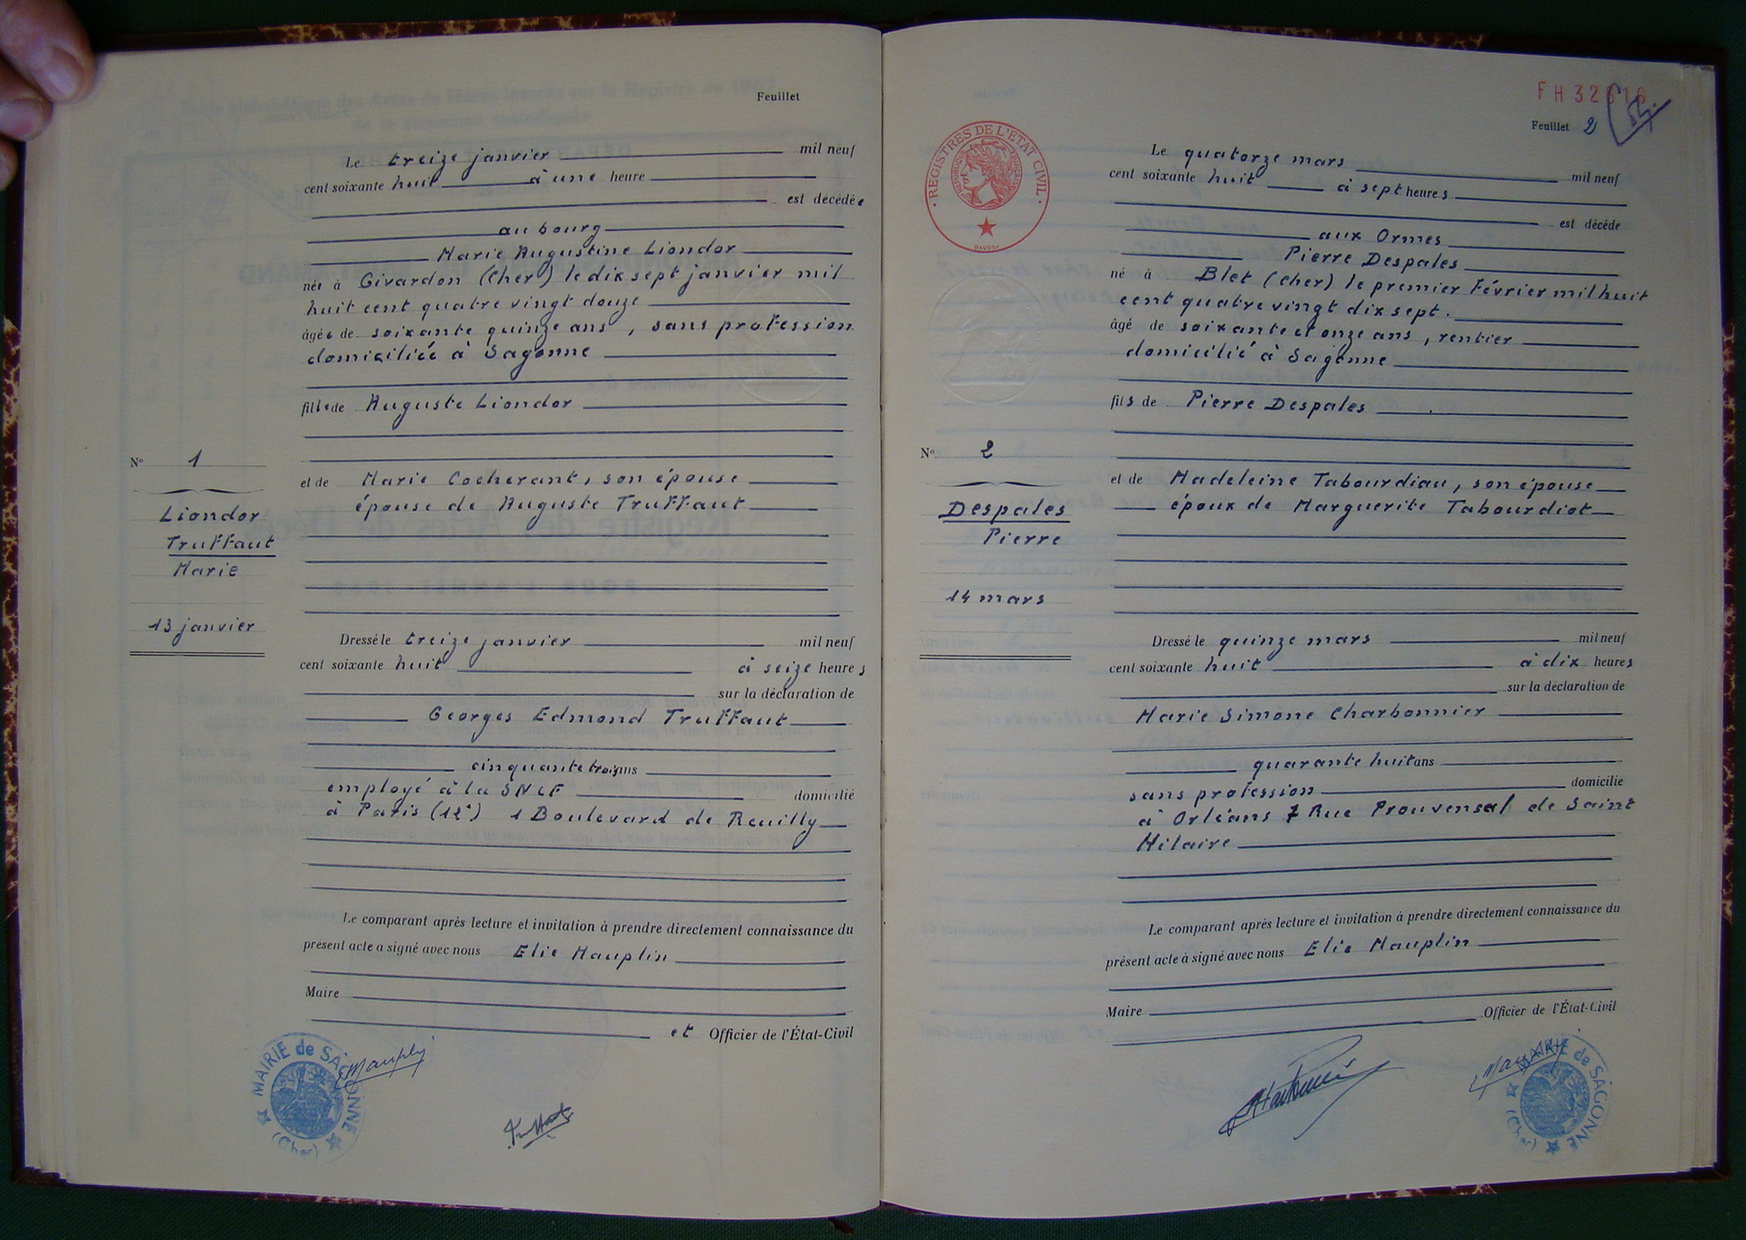 Feuillet
Le treize janvier mil neuf
cent soixante huit à une heure
est décédée
au bourg
Marie Augustine Liondor
née à Givardon (Cher) le dix sept janvier mil
huit cent quatre vingt douze
âgée de soixante quinze ans, sans profession
domiciliée à Sagonne
fille de Auguste Liondor
N° 1
et de Marie Cocherant, son épouse
épouse de Auguste Truffaut
Liondor
Truffaut
Marie
13 janvier
Dressé le treize janvier mil neuf
cent soixante huit à seize heures
sur la déclaration de
Georges Edmond Truffaut
cinquante trois ans
employé à la SNCF domicilié
à Paris (12e) 1 Boulevard de Reuilly
Le comparant après lecture et invitation à prendre directement connaissance du
présent acte a signé avec nous Elie Mauplin
Maire
et Officier de l'État-Civil
MAIRIE de SAGONNE
(Cher)
Mauplin
Truffaut
Feuillet 2
REGISTRES DE L'ETAT CIVIL
Le quatorze mars mil neuf
cent soixante huit à sept heures
est décédé
aux Ormes
Pierre Despales
né à Blet (Cher) le premier Février mil huit
cent quatre vingt dix sept.
âgé de soixante et onze ans, rentier
domicilié à Sagonne
fils de Pierre Despales
N° 2
et de Madeleine Tabourdiau, son épouse
époux de Marguerite Tabourdiot
Despales
Pierre
14 mars
Dressé le quinze mars mil neuf
cent soixante huit à dix heures
sur la déclaration de
Marie Simone Charbonnier
quarante huit ans
sans profession domicilié
à Orléans 7 Rue Prouvensal de Saint
Hilaire
Le comparant après lecture et invitation à prendre directement connaissance du
présent acte à signé avec nous Elie Mauplin
Maire
Officier de l'État-Civil
MAIRIE de SAGONNE
(Cher)